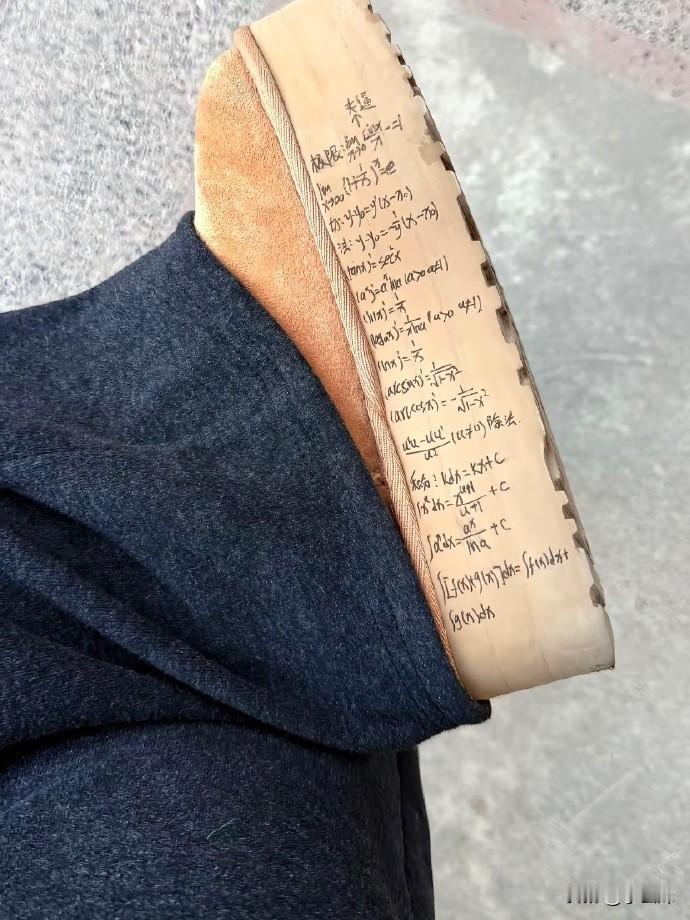 ↑
极限: lim x→0 sinx/x =1
lim x→∞ (1+1/x)^x=e
切: y-y₀=y'(x-x₀)
法: y-y₀=-1/y'(x-x₀)
(tanx)'=sec²x
(aˣ)'=aˣlna (a>0 a≠1)
(lnx)'=1/x
(logₐx)'=1/xlna (a>0 a≠1)
(lnx)'=1/x
(arcsinx)'=1/√1-x²
(arccosx)'=-1/√1-x²
u'u-uu'/u² (u≠0) 除法.
kdx=kx+C
∫xᵘdx=xᵘ⁺¹/u+1 +C
∫aˣdx=aˣ/lna +C
∫[f(x)+g(x)]dx=∫f(x)dx+
∫g(x)dx